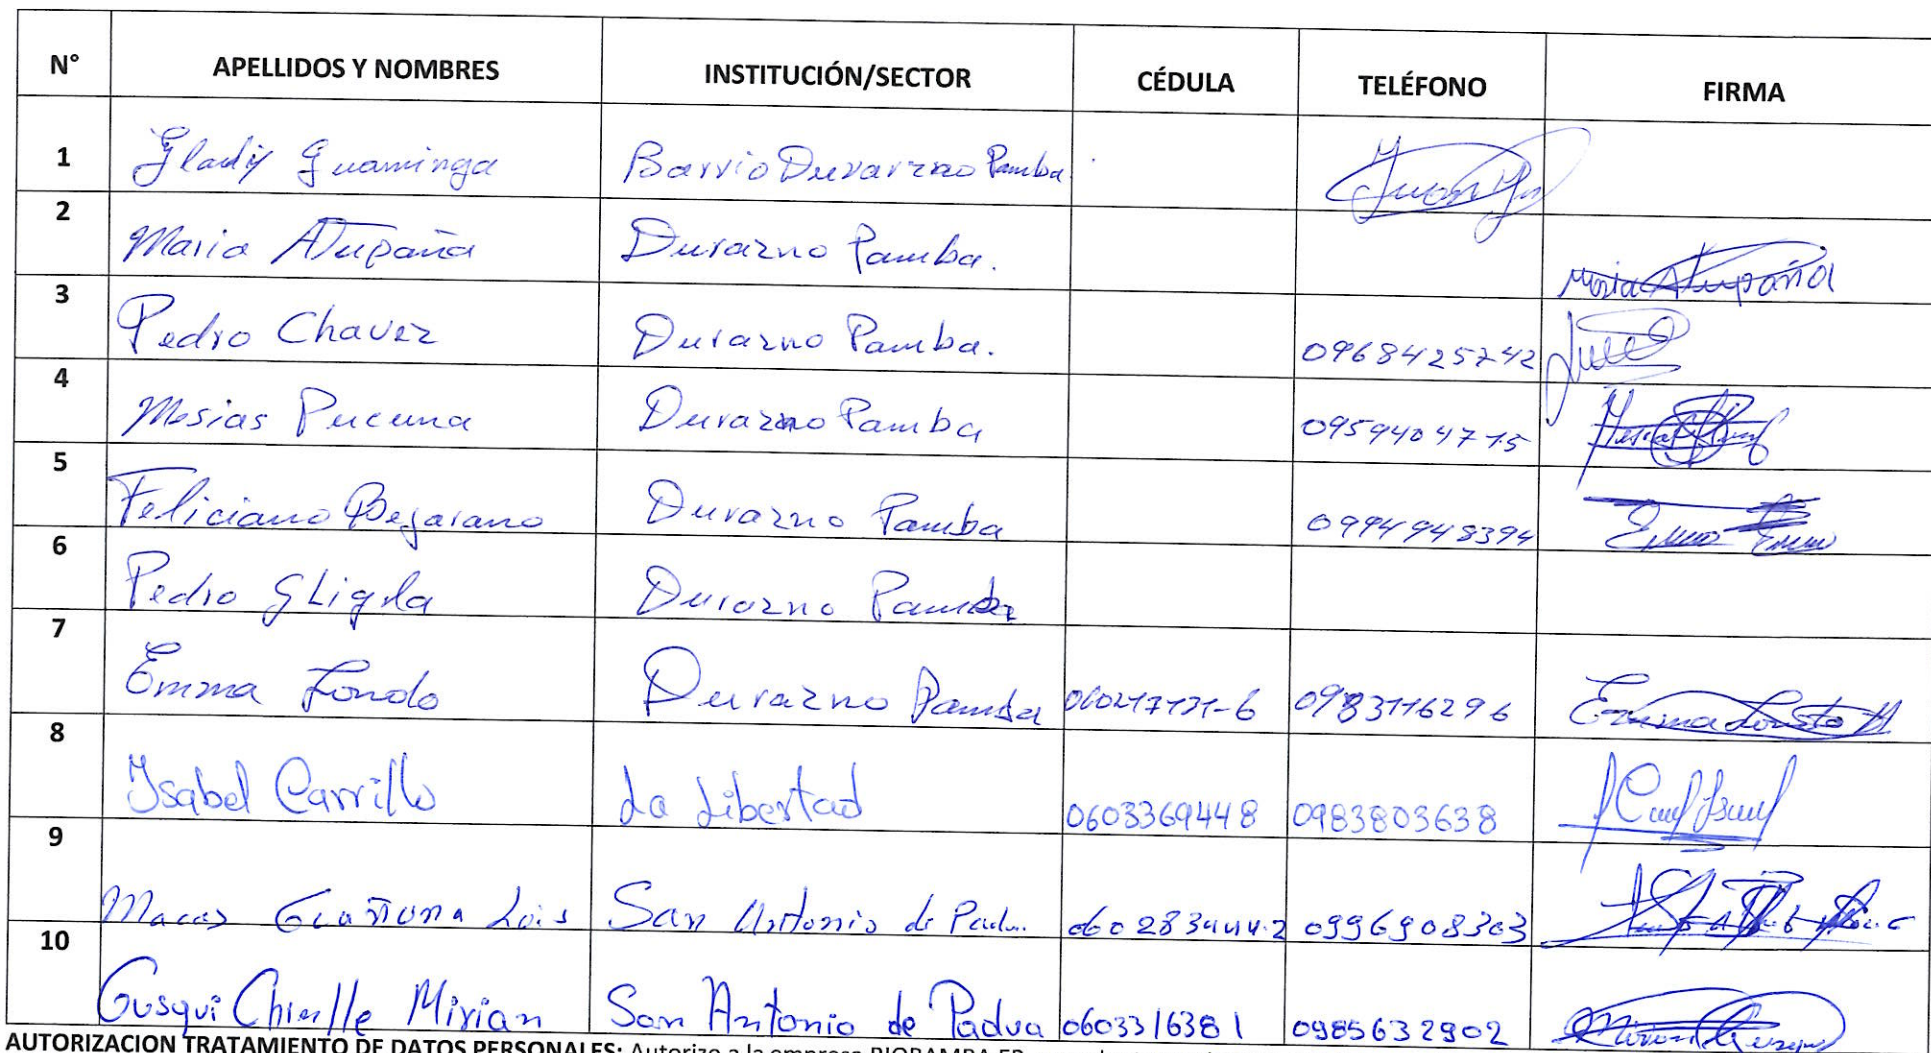 N° APELLIDOS Y NOMBRES INSTITUCIÓN/SECTOR CÉDULA TELÉFONO FIRMA
1 Gladiz Guaminga Barrio Durarzno Pamba.
2 Maria Atupaña Durazno Pamba. Maria Atupaña
3 Pedro Chavez Durazno Pamba. 0968425742
4 Mesias Pucuna Durazno Pamba 0959404715
5 Feliciano Bejarano Durazno Pamba 0994948394
6 Pedro Durazno Pamba
7 Emma Londo Durazno Pamba 060217131-6 0983116296
8 Isabel Carrillo La Libertad 0603369448 0983803638
9 Macas Luis San Antonio de 0996908303
10 Gusqui Mirian San Antonio de Padua 0603316381 0985632902
AUTORIZACION TRATAMIENTO DE DATOS PERSONALES: Autorizo a la empresa RIOBAMBA EP